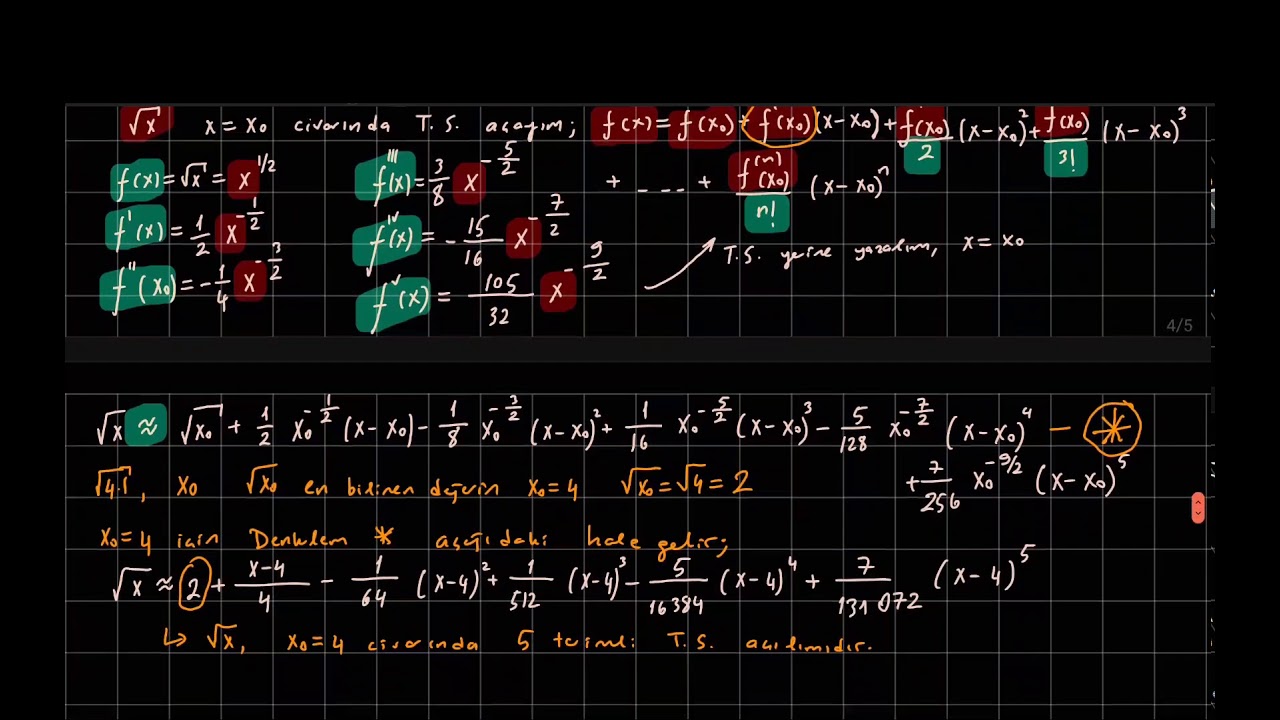 √x x = x₀ civarında T.S. açayım; f(x) = f(x₀) + f'(x₀)(x-x₀) + f(x₀)/2 (x-x₀)² + f(x₀)/3! (x-x₀)³
+ - - - + f⁽ⁿ⁾(x₀)/n! (x-x₀)ⁿ
f(x) = √x = x^(1/2)
f'(x) = 1/2 x^(-1/2)
f''(x₀) = -1/4 x^(-3/2)
f'''(x) = 3/8 x^(-5/2)
f^IV(x) = -15/16 x^(-7/2)
f^V(x) = 105/32 x^(-9/2)
T.S. yerine yazalım, x = x₀
4/5
√x ≈ √x₀ + 1/2 x₀^(-1/2) (x-x₀) - 1/8 x₀^(-3/2) (x-x₀)² + 1/16 x₀^(-5/2) (x-x₀)³ - 5/128 x₀^(-7/2) (x-x₀)⁴ - *
+ 7/256 x₀^(-9/2) (x-x₀)⁵
√4.1, x₀ √x₀ en bilinen değerin x₀=4 √x₀ = √4 = 2
x₀=4 için Denklem * aşağıdaki hale gelir;
√x ≈ 2 + (x-4)/4 - 1/64 (x-4)² + 1/512 (x-4)³ - 5/16384 (x-4)⁴ + 7/131072 (x-4)⁵
↳ √x, x₀=4 civarında 5 terimli T.S. açılımıdır.